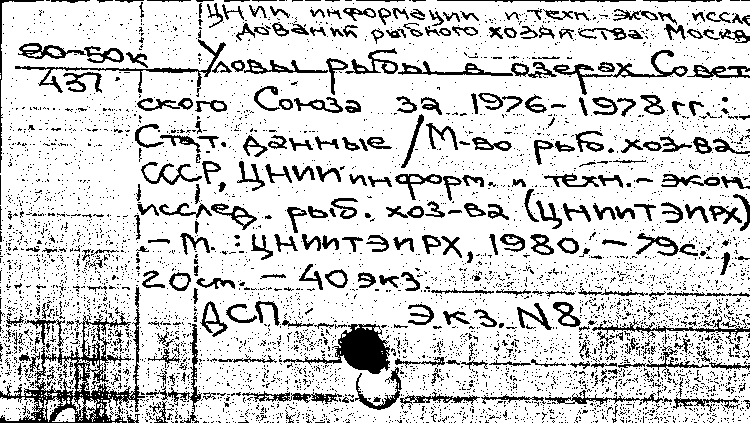 ЦНИИ информации и техн.-экон. иссле
дований рыбного хозяйства. Москв
80-50к
437
Уловы рыбы в озерах Совет
ского Союза за 1976-1978 гг. :
Стат. данные / М-во рыб. хоз-ва
СССР, ЦНИИ информ. и техн.-экон.
исслед. рыб. хоз-ва (ЦНИИТЭИРХ)
. - М. : ЦНИИТЭИРХ, 1980. - 79с. ;
20 см. - 40 экз
ДСП. Экз. N8.